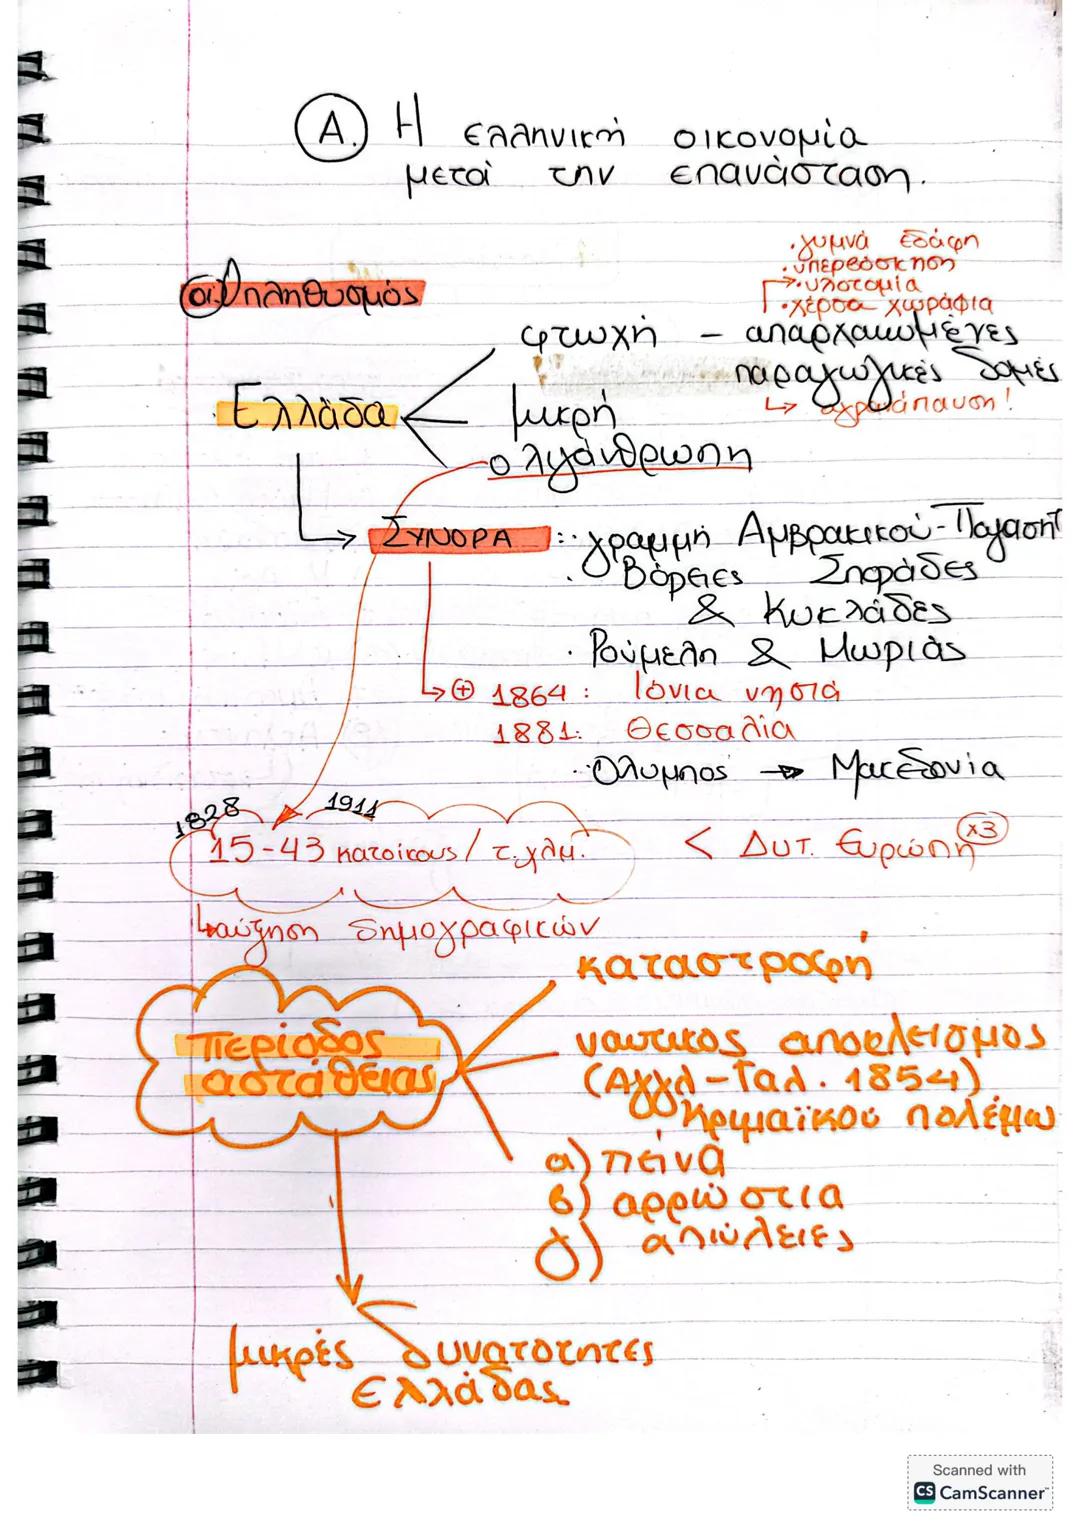 Α. Η ελληνική οικονομία
μετά την επανάσταση.
α. Πληθυσμός
·γυμνά εδάφη
·υπερβόσκηση
→·υλοτομία
·χέρσα χωράφια
φτωχή – απαρχαιωμένες
παραγωγικές δομές
↳ αγρανάπαυση!
Ελλάδα
μικρή
ολιγάνθρωπη
→ ΣΥΝΟΡΑ : · γραμμή Αμβρακικού-Παγασητ
· Βόρειες Σποράδες
& Κυκλάδες
· Ρούμελη & Μωριάς
↳ ⊕ 1864 : Ιόνια νησιά
1881: Θεσσαλία
· Όλυμπος → Μακεδονία
1828 1911
15-43 κατοίκους/ τ.χλμ. < Δυτ. Ευρώπη x3
↳ αύξηση δημογραφικών
καταστροφή
περίοδος
αστάθειας
ναυτικός αποκλεισμός
(Αγγλ-Γαλ. 1854)
Κριμαϊκού πολέμου
α) πείνα
β) αρρώστια
γ) απώλειες
μικρές δυνατότητες
Ελλάδας
Scanned with
CS CamScanner